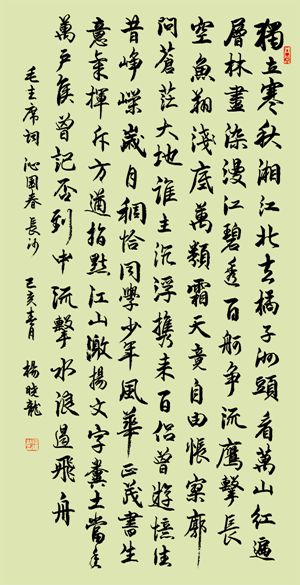 獨立寒秋湘江北去橘子洲頭看萬山紅遍
層林盡染漫江碧透百舸争流鷹擊長
空魚翔淺底萬類霜天竞自由悵寥廓
問蒼茫大地誰主沉浮携来百侣曾遊憶往
昔崢嶸歲月稠恰同學少年風華正茂書生
意氣揮斥方遒指點江山激揚文字糞土當年
萬戶侯曾記否到中流擊水浪遏飛舟
毛主席詞 沁園春 長沙 己亥春月 楊曉龍